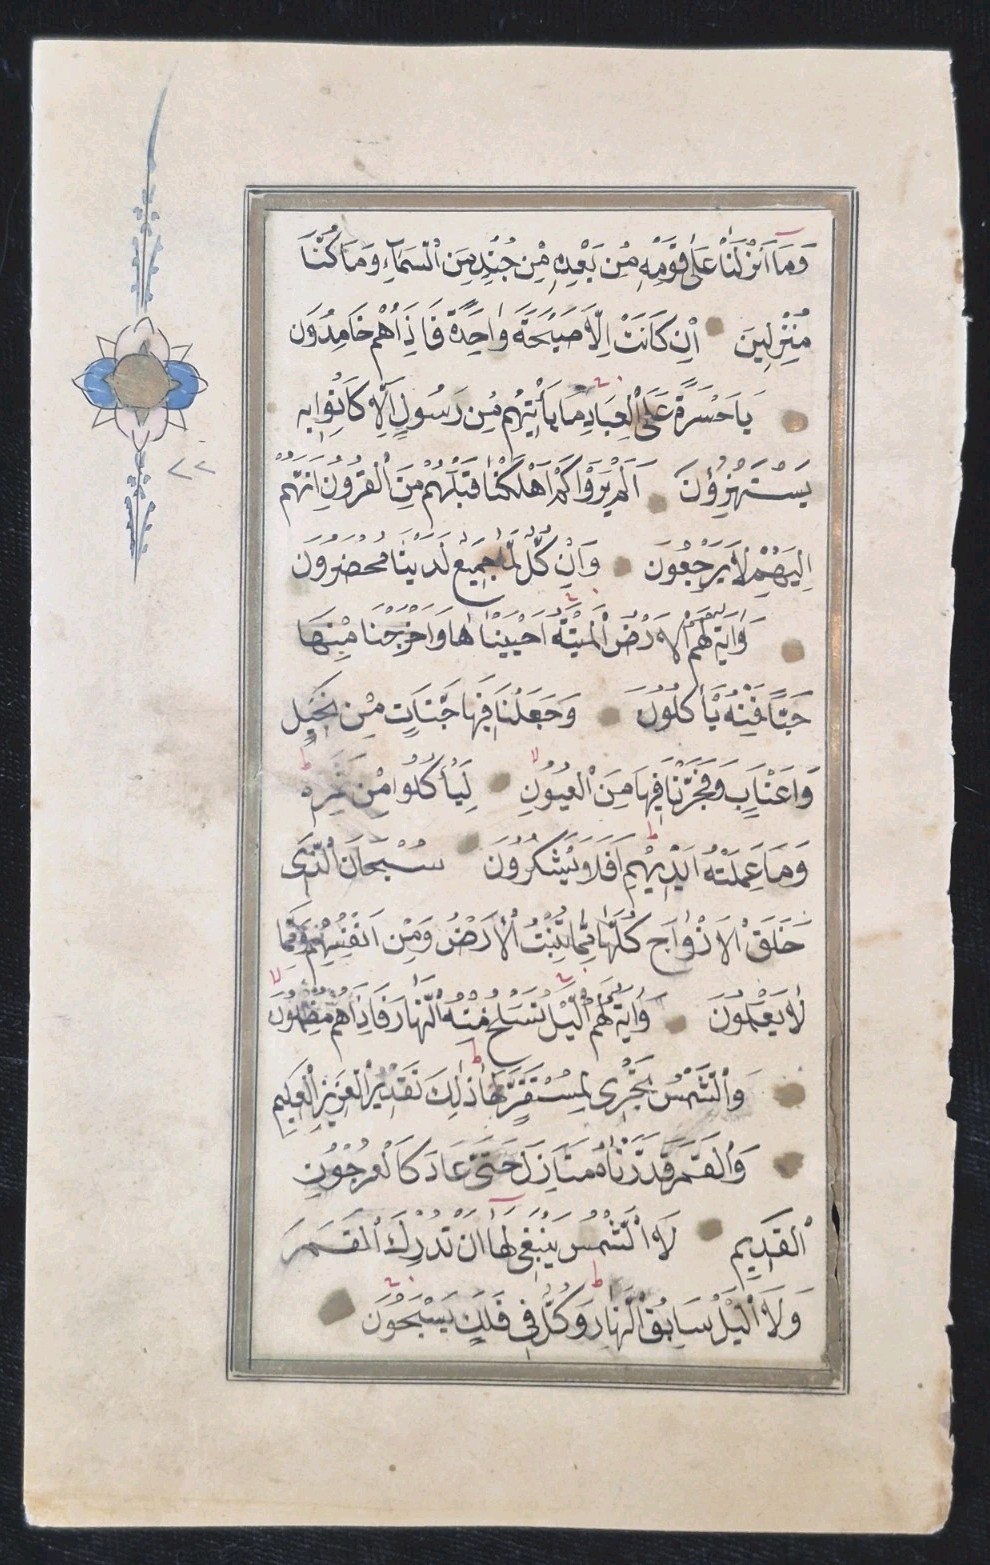 وَمَا اَنْزَلْنَا عَلٰى قَوْمِهِ مِنْ بَعْدِهِ مِنْ جُنْدٍ مِنَ السَّمَاءِ وَمَا كُنَّا
مُنْزِلِينَ اِنْ كَانَتْ اِلَّا صَيْحَةً وَاحِدَةً فَاِذَا هُمْ خَامِدُونَ
يَا حَسْرَةً عَلَى الْعِبَادِ مَا يَأْتِيهِمْ مِنْ رَسُولٍ اِلَّا كَانُوا بِهِ
يَسْتَهْزِؤُنَ اَلَمْ يَرَوْا كَمْ اَهْلَكْنَا قَبْلَهُمْ مِنَ الْقُرُونِ اَنَّهُمْ
اِلَيْهِمْ لَا يَرْجِعُونَ وَاِنْ كُلٌّ لَمَّا جَمِيعٌ لَدَيْنَا مُحْضَرُونَ
وَاٰيَةٌ لَهُمُ الْاَرْضُ الْمَيْتَةُ اَحْيَيْنَاهَا وَاَخْرَجْنَا مِنْهَا
حَبًّا فَمِنْهُ يَأْكُلُونَ وَجَعَلْنَا فِيهَا جَنَّاتٍ مِنْ نَخِيلٍ
وَاَعْنَابٍ وَفَجَّرْنَا فِيهَا مِنَ الْعُيُونِ لِيَأْكُلُوا مِنْ ثَمَرِهِ
وَمَا عَمِلَتْهُ اَيْدِيهِمْ اَفَلَا يَشْكُرُونَ سُبْحَانَ الَّذِي
خَلَقَ الْاَزْوَاجَ كُلَّهَا مِمَّا تُنْبِتُ الْاَرْضُ وَمِنْ اَنْفُسِهِمْ وَمِمَّا
لَا يَعْلَمُونَ وَاٰيَةٌ لَهُمُ الَّيْلُ نَسْلَخُ مِنْهُ النَّهَارَ فَاِذَا هُمْ مُظْلِمُونَ
وَالشَّمْسُ تَجْرِي لِمُسْتَقَرٍّ لَهَا ذٰلِكَ تَقْدِيرُ الْعَزِيزِ الْعَلِيمِ
وَالْقَمَرَ قَدَّرْنَاهُ مَنَازِلَ حَتّٰى عَادَ كَالْعُرْجُونِ
الْقَدِيمِ لَا الشَّمْسُ يَنْبَغِي لَهَا اَنْ تُدْرِكَ الْقَمَرَ
وَلَا الَّيْلُ سَابِقُ النَّهَارِ وَكُلٌّ فِي فَلَكٍ يَسْبَحُونَ